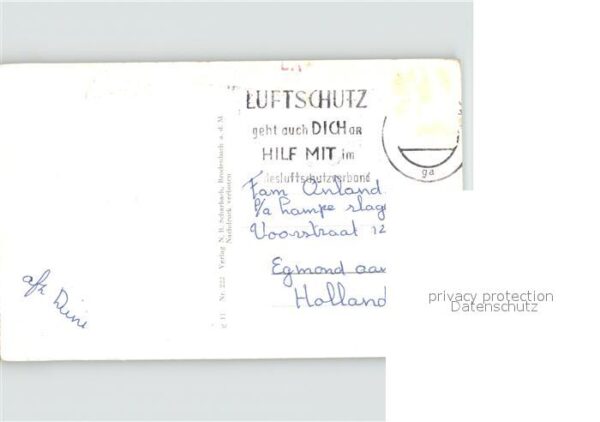 LUFTSCHUTZ
geht auch DICH an
HILF MIT im
esluftschutzverband
ga
Fam
Voorstraat 12
Egmond aan
Holland
afz
Nr. 222 Verlag N. B. Scharbach, Brodenbach a. d. M
Nachdruck verboten
privacy protection
Datenschutz